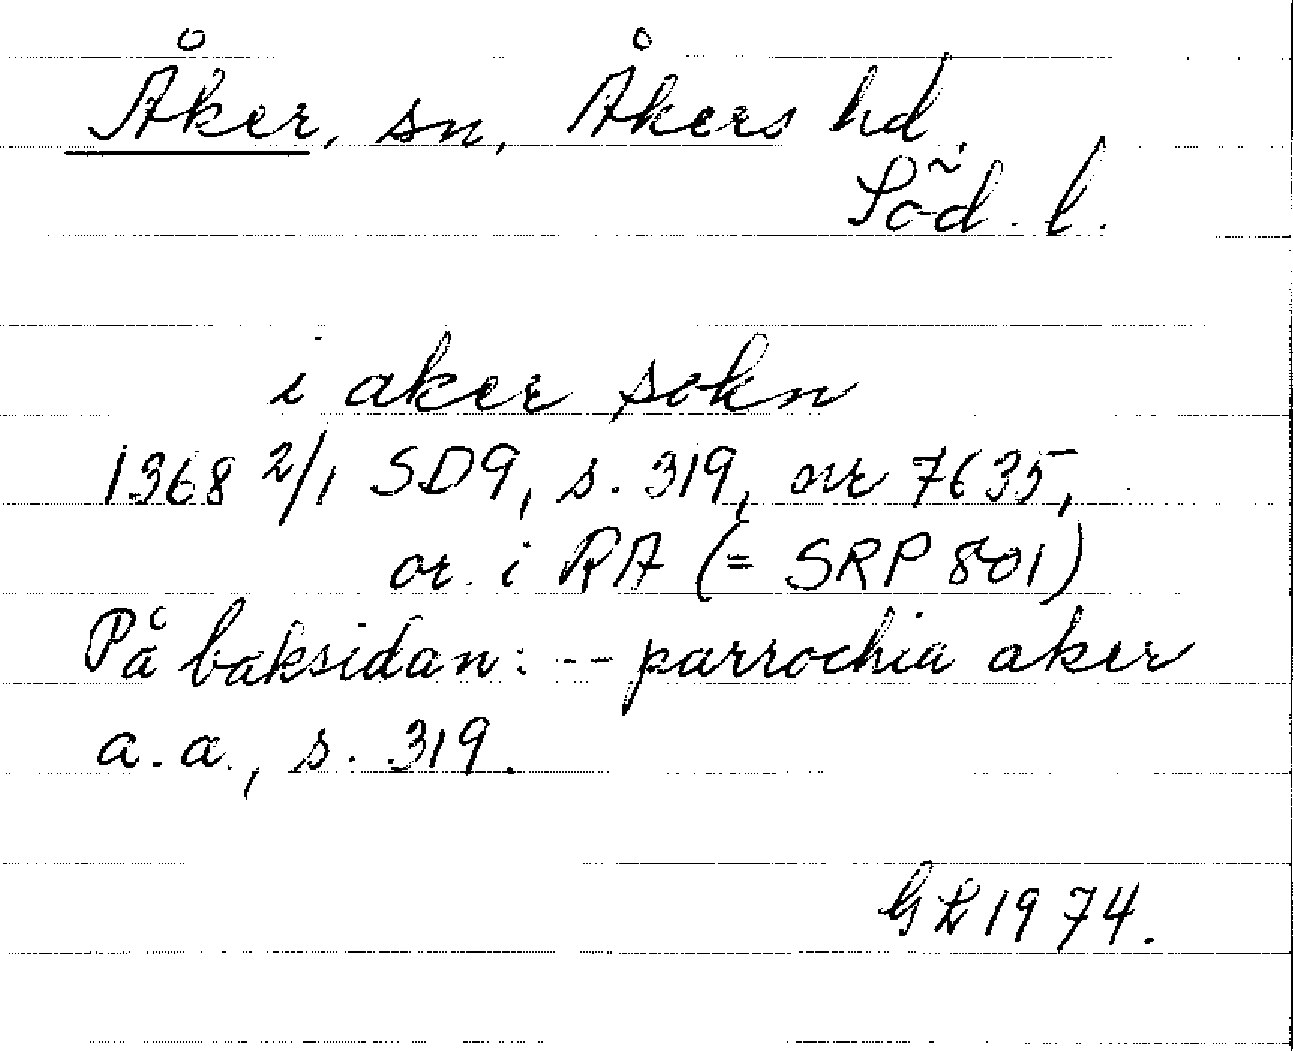 Åker, sn, Åkers hd,
Söd. l.
i aker sokn
1368 2/1 SD9, s. 319, nr 7635,
or. i RA (= SRP 801)
På baksidan: -- parrochia aker
a.a., s. 319.
1974.